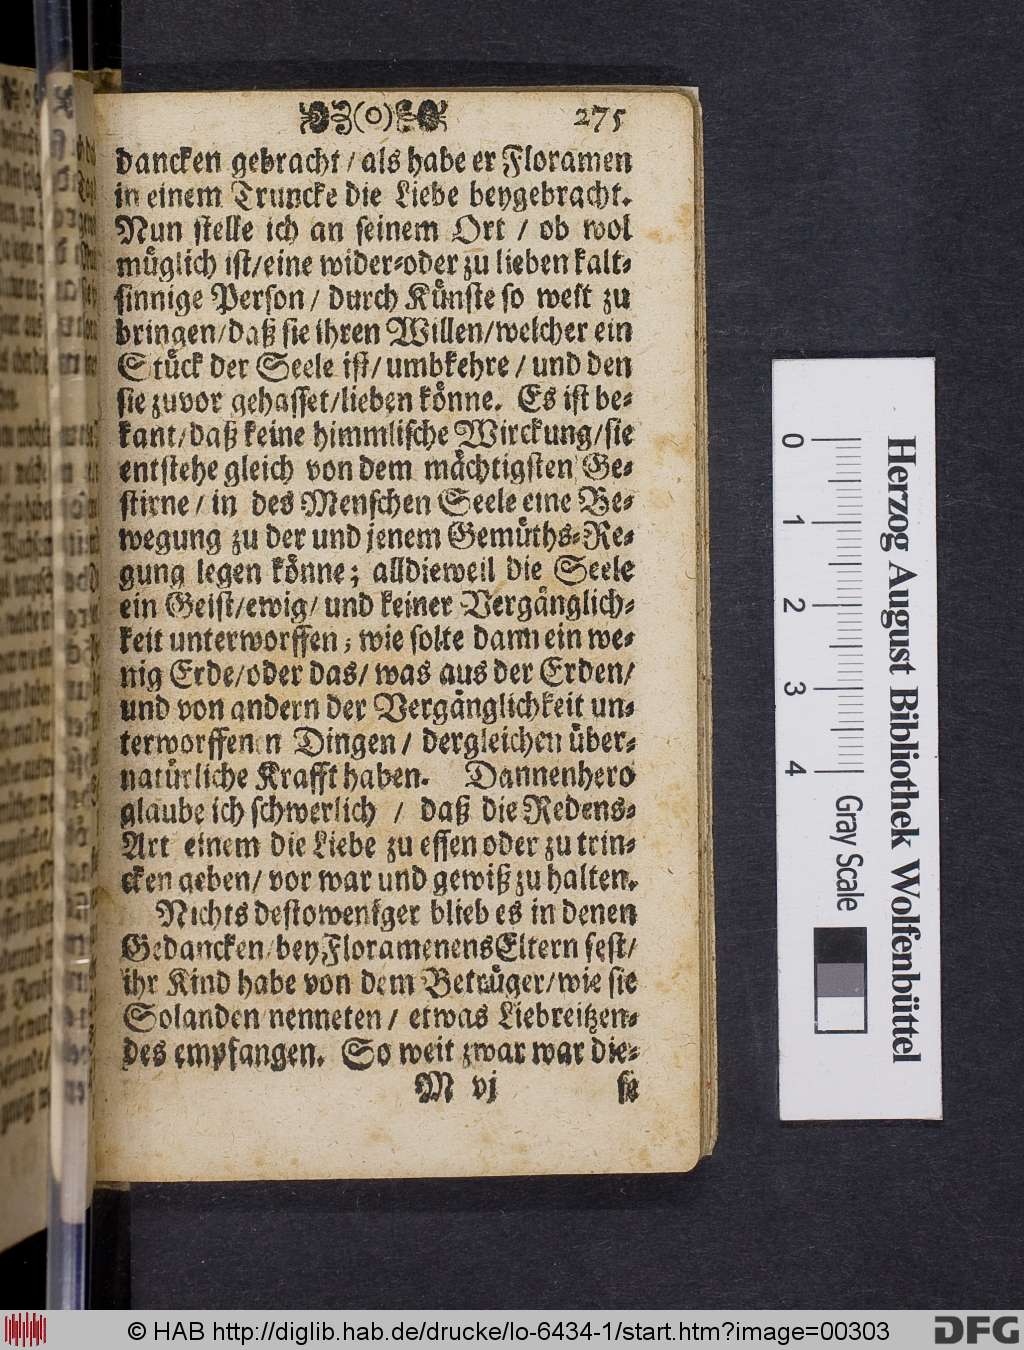 275
dancken gebracht / als habe er Floramen
in einem Truncke die Liebe beygebracht.
Nun stelle ich an seinem Ort / ob wol
müglich ist/eine wider-oder zu lieben kalt-
sinnige Person / durch Künste so weit zu
bringen/daß sie ihren Willen/welcher ein
Stück der Seele ist/ umbkehre / und den
sie zuvor gehasset/lieben könne. Es ist be-
kant/daß keine himmlische Wirckung/sie
entstehe gleich von dem mächtigsten Ge-
stirne / in des Menschen Seele eine Be-
wegung zu der und jenem Gemüths-Re-
gung legen könne; alldieweil die Seele
ein Geist/ewig/ und keiner Vergänglich-
keit unterworffen; wie solte dann ein we-
nig Erde/oder das/ was aus der Erden/
und von andern der Vergänglichkeit un-
terworffenen Dingen / dergleichen über-
natürliche Krafft haben. Dannenhero
glaube ich schwerlich / daß die Redens-
Art einem die Liebe zu essen oder zu trin-
cken geben/ vor war und gewiß zu halten.
Nichts destoweniger blieb es in denen
Gedancken/bey FloramenensEltern fest/
ihr Kind habe von dem Betrüger/wie sie
Solanden nenneten / etwas Liebreitzen-
des empfangen. So weit zwar war die-
M vj se
0 1 2 3 4
Herzog August Bibliothek Wolfenbüttel
Gray Scale
© HAB http://diglib.hab.de/drucke/lo-6434-1/start.htm?image=00303
DFG